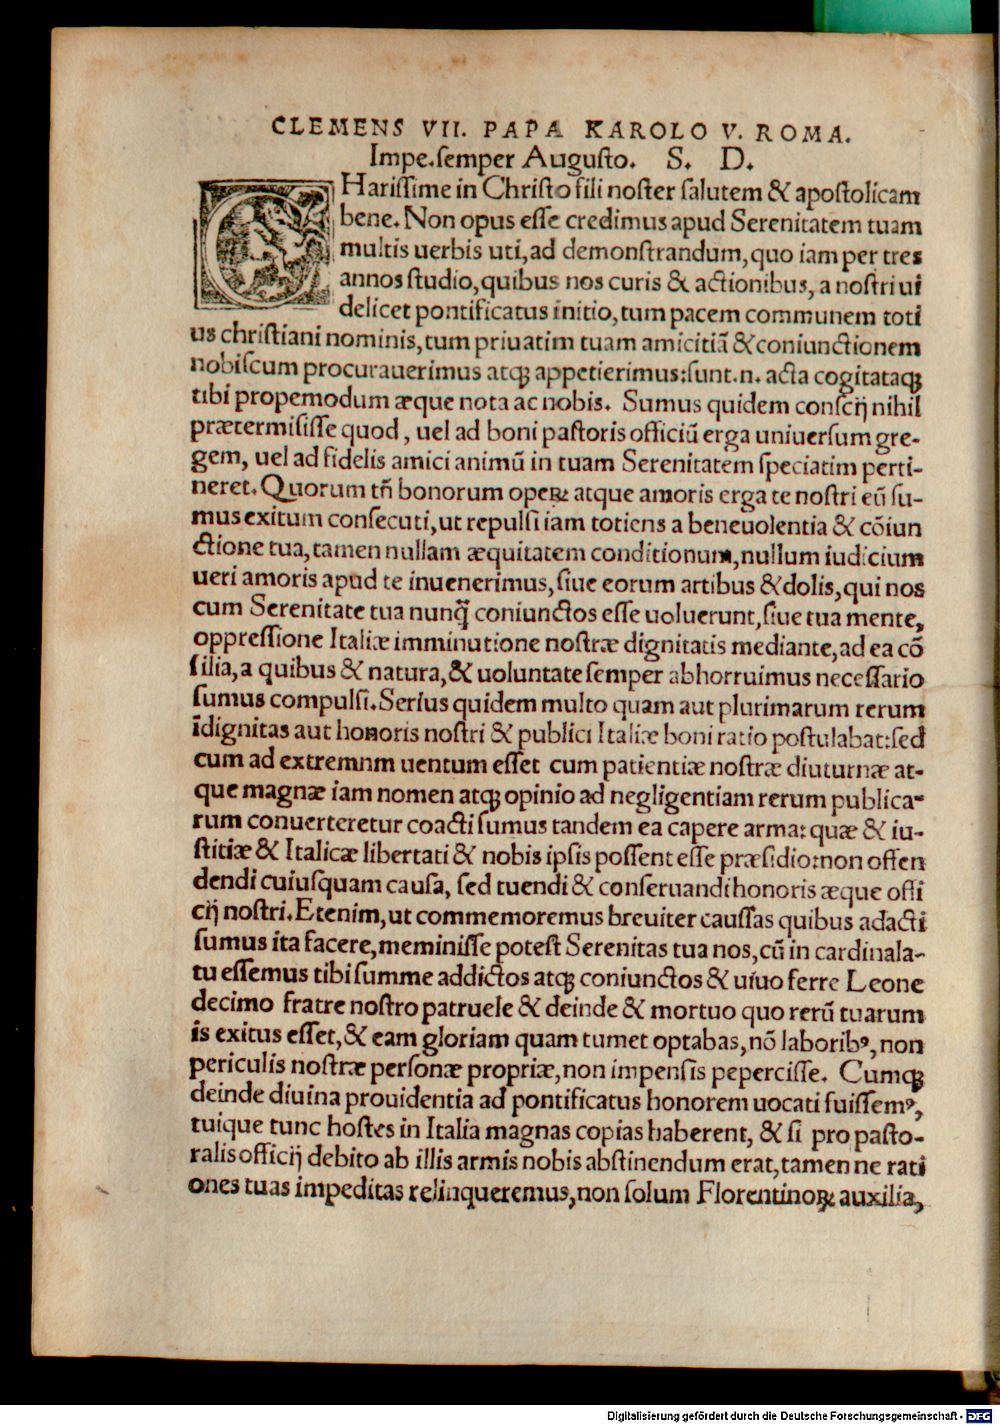 CLEMENS VII. PAPA KAROLO V. ROMA.
Impe.semper Augusto. S. D.
CHarissime in Christo fili noster salutem & apostolicam
bene. Non opus esse credimus apud Serenitatem tuam
multis uerbis uti, ad demonstrandum, quo iam per tres
annos studio, quibus nos curis & actionibus, a nostri ui
delicet pontificatus initio, tum pacem communem toti
us christiani nominis, tum priuatim tuam amicitiã & coniunctionem
nobiscum procurauerimus atqꝫ appetierimus: sunt.n. acta cogitataqꝫ
tibi propemodum æque nota ac nobis. Sumus quidem conscij nihil
prætermisisse quod, uel ad boni pastoris officiũ erga uniuersum gre-
gem, uel ad fidelis amici animũ in tuam Serenitatem speciatim perti-
neret. Quorum tñ bonorum operꝝ atque amoris erga te nostri eũ su-
mus exitum consecuti, ut repulsi iam totiens a beneuolentia & cõiun
ctione tua, tamen nullam æquitatem conditionum, nullum iudicium
ueri amoris apud te inuenerimus, siue eorum artibus & dolis, qui nos
cum Serenitate tua nunq̃ coniunctos esse uoluerunt, siue tua mente,
oppressione Italiæ imminutione nostræ dignitatis mediante, ad ea cõ
silia, a quibus & natura, & uoluntate semper abhorruimus necessario
sumus compulsi. Serius quidem multo quam aut plurimarum rerum
ĩdignitas aut honoris nostri & publici Italiæ boni ratio postulabat: sed
cum ad extremnm uentum esset cum patientiæ nostræ diuturnæ at-
que magnæ iam nomen atqꝫ opinio ad negligentiam rerum publica-
rum conuerteretur coacti sumus tandem ea capere arma: quæ & iu-
stitiæ & Italicæ libertati & nobis ipsis possent esse præsidio: non offen
dendi cuiusquam causa, sed tuendi & conseruandi honoris æque offi
cij nostri. Etenim, ut commemoremus breuiter caussas quibus adacti
sumus ita facere, meminisse potest Serenitas tua nos, cũ in cardinala-
tu essemus tibi summe addictos atqꝫ coniunctos & uiuo ferre Leone
decimo fratre nostro patruele & deinde & mortuo quo rerũ tuarum
is exitus esset, & eam gloriam quam tumet optabas, nõ laboribꝰ, non
periculis nostræ personæ propriæ, non impensis pepercisse. Cumqꝫ
deinde diuina prouidentia ad pontificatus honorem uocati fuissemꝰ,
tuique tunc hostes in Italia magnas copias haberent, & si pro pasto-
ralis officij debito ab illis armis nobis abstinendum erat, tamen ne rati
ones tuas impeditas relinqueremus, non solum Florentinoꝝ auxilia,
Digitalisierung gefördert durch die Deutsche Forschungsgemeinschaft - DFG